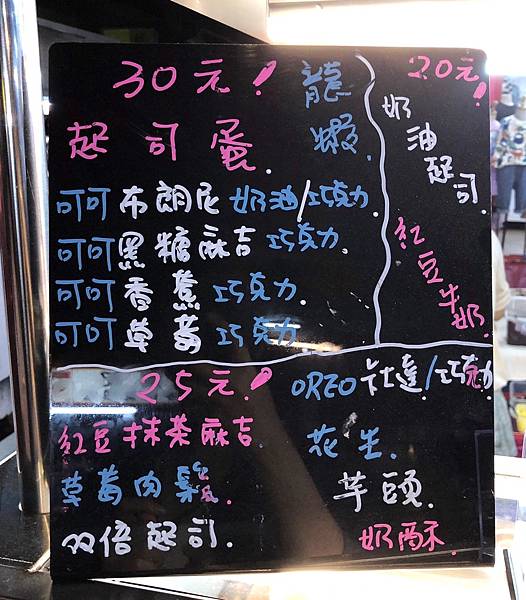 30元!
龍蝦.
起司蛋.
可可布朗尼 奶油/巧克力.
可可黑糖麻吉 巧克力.
可可香蕉 巧克力.
可可草莓 巧克力.
20元!
奶油起司.
紅豆牛奶.
25元!
紅豆抹茶麻吉.
草莓肉鬆.
双倍起司.
OREO 卡士達/巧克力
花生.
芋頭.
奶酥.